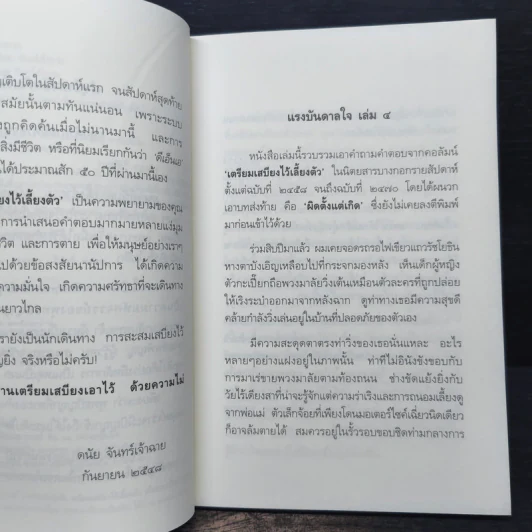 เติบโตในสัปดาห์แรก จนสัปดาห์สุดท้าย
สมัยนั้นตามทันแน่นอน เพราะระบบ
ถูกคิดค้นเมื่อไม่นานมานี้ และการ
สิ่งมีชีวิต หรือที่นิยมเรียกกันว่า 'ดีเอ็นเอ'
ได้ประมาณสัก ๕๐ ปีที่ผ่านมานี้เอง
ไว้เลี้ยงตัว' เป็นความพยายามของคุณ
การนำเสนอคำตอบมากมายหลายแง่มุม
ชีวิต และการตาย เพื่อให้มนุษย์อย่างเราๆ
ไปด้วยข้อสงสัยนานัปการ ได้เกิดความ
ความมั่นใจ เกิดความศรัทธาที่จะเดินทาง
ยาวไกล
รายังเป็นนักเดินทาง การสะสมเสบียงไว้
ยิ่ง จริงหรือไม่ครับ!
านเตรียมเสบียงเอาไว้ ด้วยความไม่
ดนัย จันทร์เจ้าฉาย
กันยายน ๒๕๔๘
แรงบันดาลใจ เล่ม ๔
หนังสือเล่มนี้รวบรวมเอาคำถามคำตอบจากคอลัมน์
'เตรียมเสบียงไว้เลี้ยงตัว' ในนิตยสารบางกอกรายสัปดาห์
ตั้งแต่ฉบับที่ ๒๔๕๘ จนถึงฉบับที่ ๒๔๗๐ โดยได้ผนวก
เอาบทส่งท้าย คือ 'ผิดตั้งแต่เกิด' ซึ่งยังไม่เคยลงตีพิมพ์
มาก่อนเข้าไว้ด้วย
ร่วมสิบปีมาแล้ว ผมเคยจอดรถรอไฟเขียวแถวรัชโยธิน
หางตาบังเอิญเหลือบไปที่กระจกมองหลัง เห็นเด็กผู้หญิง
ตัวกะเปี๊ยกถือพวงมาลัยวิ่งเต้นเหมือนตัวละครที่ถูกปล่อย
ให้เริงระบำออกมาจากหลังฉาก ดูท่าทางเธอมีความสุขดี
คล้ายกำลังวิ่งเล่นอยู่ในบ้านที่ปลอดภัยของตัวเอง
มีความสะดุดตาตรงท่าวิ่งของเธอนั่นแหละ อะไร
หลายๆอย่างแฝงอยู่ในภาพนั้น ท่าทีไม่อินังขังขอบกับ
การมาเร่ขายพวงมาลัยตามท้องถนน ช่างขัดแย้งยิ่งกับ
วัยไร้เดียงสาที่น่าจะรู้จักแต่ความร่าเริงและการถนอมเลี้ยงดู
จากพ่อแม่ ตัวเล็กจ้อยที่เพียงโดนมอเตอร์ไซค์เฉี่ยวนิดเดียว
ก็อาจล้มตายได้ สมควรอยู่ในรั้วรอบขอบชิดท่ามกลางการ